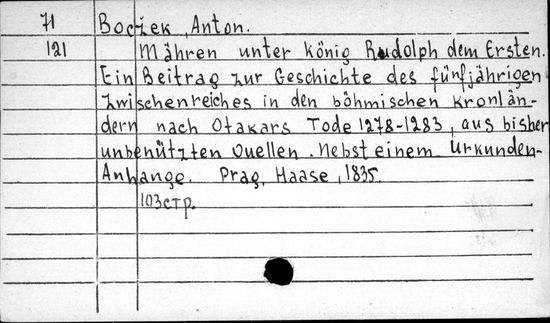 71 Boczek, Anton.
121 Mähren unter könig Rudolph dem Ersten.
Ein Beitrag zur Geschichte des fünfjährigen
Zwischenreiches in den böhmischen Kronlän-
dern nach Otakars Tode 1278-1283, aus bisher
unbenützten Quellen. Nebst einem Urkunden-
Anhange. Prag, Haase, 1835.
103 стр.